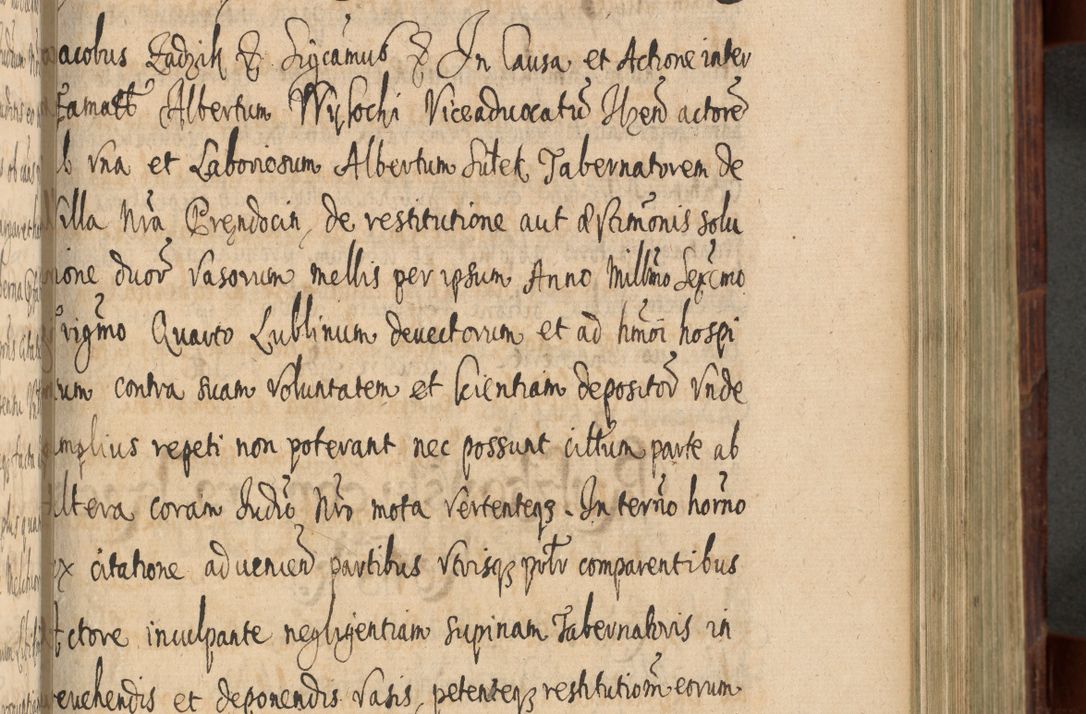 Jacobus Zadzik & Sigcamus & In Causa et Actione inter
Famatt Albertum Wysochi Viceaduocatū Ilzen̄ actorē
ab vna et Laboriosum Albertum Sutek Tabernatorem de
Villa Nr̄a Prędocin, de restitutione aut æstimōnis solu
tione duor̄ vasorum mellis per ipsum Anno Millm̄o Sexc̄mo
Trigm̄o Quarto Lublinum deuectorum et ad hm̄oi hospi
tium contra suam voluntatem et scientiam depositor̄ vnde
amplius repeti non poterant nec possunt citt̄um parte ab
altera coram Iudiō Nr̄o mota vertenteq3. In terīno horn̄o
ex citatione aduenien̄ partibus vtrisq3 pn̄tr comparentibus
Actore inculpante negligentiam supinam Tabernatoris in
reuehendis et deponendis vasis, petenteq3 restitutiōm eorum